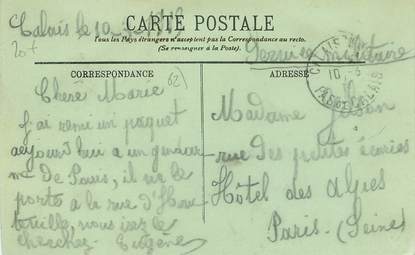 Calais le 10
CARTE POSTALE
Tous les Pays étrangers n'acceptent pas la Correspondance au recto.
(Se renseigner à la Poste).
Service militaire
CORRESPONDANCE
ADRESSE
CALAIS
10
PAS DE CALAIS
Chère Marie
J'ai remi un paquet
aujourd'hui a un
de Paris, il va le
porté a la rue d'Hau
teville, vous irez le
cherchez Eugène
Madame
rue des petites écuries
Hôtel des Alpes
Paris (Seine)